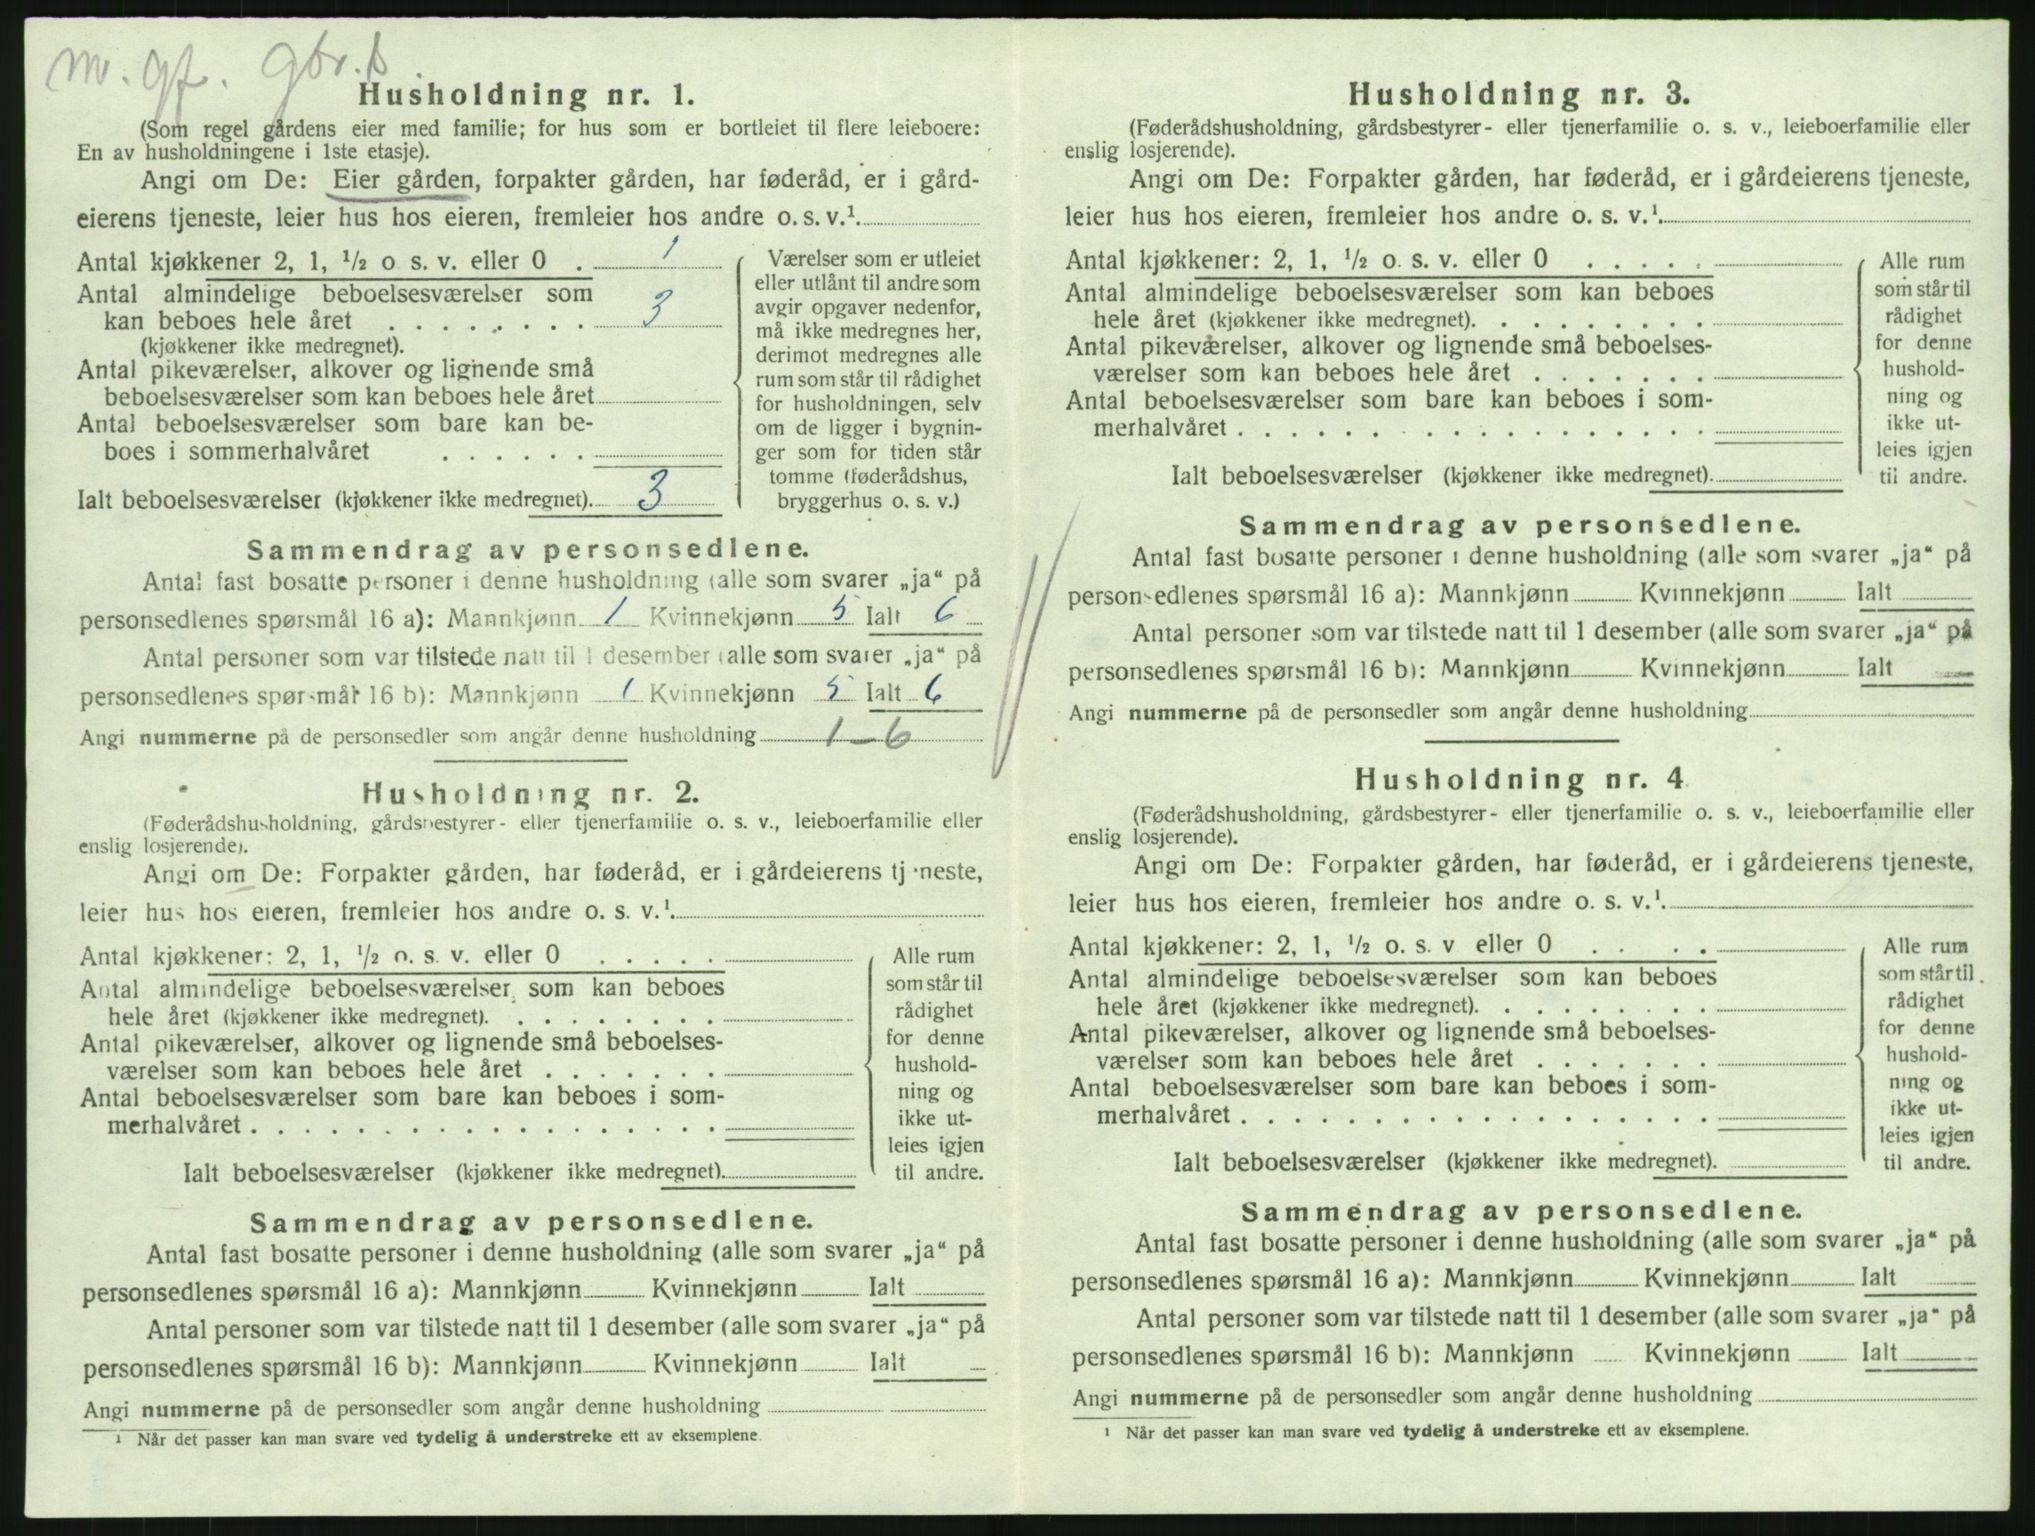 m. gf. gbr. b
Husholdning nr. 1.
(Som regel gårdens eier med familie; for hus som er bortleiet til flere leieboere:
En av husholdningene i 1ste etasje).
Angi om De: Eier gården, forpakter gården, har føderåd, er i gård-
eierens tjeneste, leier hus hos eieren, fremleier hos andre o. s. v.¹.
Antal kjøkkener 2, 1, ½ o s. v. eller 0 . 1
Antal almindelige beboelsesværelser som
kan beboes hele året . . . . . . . . 3
(kjøkkener ikke medregnet).
Antal pikeværelser, alkover og lignende små
beboelsesværelser som kan beboes hele året
Antal beboelsesværelser som bare kan be-
boes i sommerhalvåret . . . . . .
Ialt beboelsesværelser (kjøkkener ikke medregnet). 3
Værelser som er utleiet
eller utlånt til andre som
avgir opgaver nedenfor,
må ikke medregnes her,
derimot medregnes alle
rum som står til rådighet
for husholdningen, selv
om de ligger i bygnin-
ger som for tiden står
tomme (føderådshus,
bryggerhus o. s. v.)
Sammendrag av personsedlene.
Antal fast bosatte personer i denne husholdning (alle som svarer „ja“ på
personsedlenes spørsmål 16 a): Mannkjønn 1 Kvinnekjønn 5 Ialt 6
Antal personer som var tilstede natt til 1 desember (alle som svarer „ja“ på
personsedlenes spørsmål 16 b): Mannkjønn 1 Kvinnekjønn 5 Ialt 6
Angi nummerne på de personsedler som angår denne husholdning 1-6
Husholdning nr. 2.
(Føderådshusholdning, gårdsbestyrer- eller tjenerfamilie o. s. v., leieboerfamilie eller
enslig losjerende).
Angi om De: Forpakter gården, har føderåd, er i gårdeierens tjeneste,
leier hus hos eieren, fremleier hos andre o. s. v.¹.
Antal kjøkkener: 2, 1, ½ o. s. v. eller 0 . . . . .
Antal almindelige beboelsesværelser som kan beboes
hele året (kjøkkener ikke medregnet). . . . . . . . .
Antal pikeværelser, alkover og lignende små beboelses-
værelser som kan beboes hele året . . . . . . .
Antal beboelsesværelser som bare kan beboes i som-
merhalvåret . . . . . . . . . . . . . . . . . .
Ialt beboelsesværelser (kjøkkener ikke medregnet).
Alle rum
som står til
rådighet
for denne
hushold-
ning og
ikke ut-
leies igjen
til andre.
Sammendrag av personsedlene.
Antal fast bosatte personer i denne husholdning (alle som svarer „ja“ på
personsedlenes spørsmål 16 a): Mannkjønn Kvinnekjønn Ialt
Antal personer som var tilstede natt til 1 desember (alle som svarer „ja“ på
personsedlenes spørsmål 16 b): Mannkjønn Kvinnekjønn Ialt
Angi nummerne på de personsedler som angår denne husholdning
¹ Når det passer kan man svare ved tydelig å understreke ett av eksemplene.
Husholdning nr. 3.
(Føderådshusholdning, gårdsbestyrer- eller tjenerfamilie o. s. v., leieboerfamilie eller
enslig losjerende).
Angi om De: Forpakter gården, har føderåd, er i gårdeierens tjeneste,
leier hus hos eieren, fremleier hos andre o. s. v.¹.
Antal kjøkkener: 2, 1, ½ o. s. v. eller 0 . . . . .
Antal almindelige beboelsesværelser som kan beboes
hele året (kjøkkener ikke medregnet). . . . . . . . .
Antal pikeværelser, alkover og lignende små beboelses-
værelser som kan beboes hele året . . . . . . .
Antal beboelsesværelser som bare kan beboes i som-
merhalvåret . . . . . . . . . . . . . . . . . .
Ialt beboelsesværelser (kjøkkener ikke medregnet).
Alle rum
som står til
rådighet
for denne
hushold-
ning og
ikke ut-
leies igjen
til andre.
Sammendrag av personsedlene.
Antal fast bosatte personer i denne husholdning (alle som svarer „ja“ på
personsedlenes spørsmål 16 a): Mannkjønn Kvinnekjønn Ialt
Antal personer som var tilstede natt til 1 desember (alle som svarer „ja“ på
personsedlenes spørsmål 16 b): Mannkjønn Kvinnekjønn Ialt
Angi nummerne på de personsedler som angår denne husholdning
Husholdning nr. 4
(Føderådshusholdning, gårdsbestyrer- eller tjenerfamilie o. s. v., leieboerfamilie eller
enslig losjerende).
Angi om De: Forpakter gården, har føderåd, er i gårdeierens tjeneste,
leier hus hos eieren, fremleier hos andre o. s. v.¹.
Antal kjøkkener: 2, 1, ½ o. s. v eller 0 . . . .
Antal almindelige beboelsesværelser som kan beboes
hele året (kjøkkener ikke medregnet). . . . . . . . .
Antal pikeværelser, alkover og lignende små beboelses-
værelser som kan beboes hele året . . . . . . .
Antal beboelsesværelser som bare kan beboes i som-
merhalvåret . . . . . . . . . . . . . . . . . .
Ialt beboelsesværelser (kjøkkener ikke medregnet).
Alle rum
som står til
rådighet
for denne
hushold-
ning og
ikke ut-
leies igjen
til andre.
Sammendrag av personsedlene.
Antal fast bosatte personer i denne husholdning (alle som svarer „ja“ på
personsedlenes spørsmål 16 a): Mannkjønn Kvinnekjønn Ialt
Antal personer som var tilstede natt til 1 desember (alle som svarer „ja“ på
personsedlenes spørsmål 16 b): Mannkjønn Kvinnekjønn Ialt
Angi nummerne på de personsedler som angår denne husholdning
¹ Når det passer kan man svare ved tydelig å understreke ett av eksemplene.